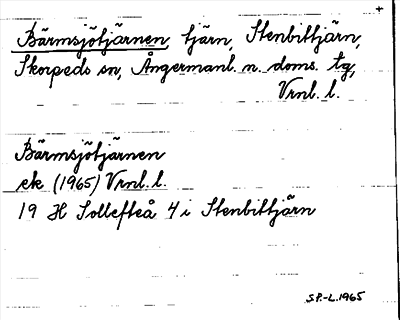 +
Bärmsjötjärnen, tjärn, Stenbittjärn,
Skorpeds sn, Ångermanl. n. doms. tg,
Vrnl. l.
Bärmsjötjärnen
ek (1965) Vrnl. l.
19 H Sollefteå 4 i Stenbittjärn
S.P.-L. 1965